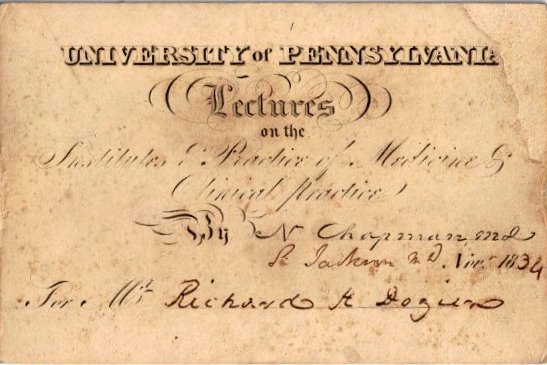 UNIVERSITY of PENNSYLVANIA
Lectures
on the
Institutes & Practice of Medicine &
Clinical Practice
By N Chapman MD
S. Jackson MD Nov. 1834
For Mr. Richard A Dozier